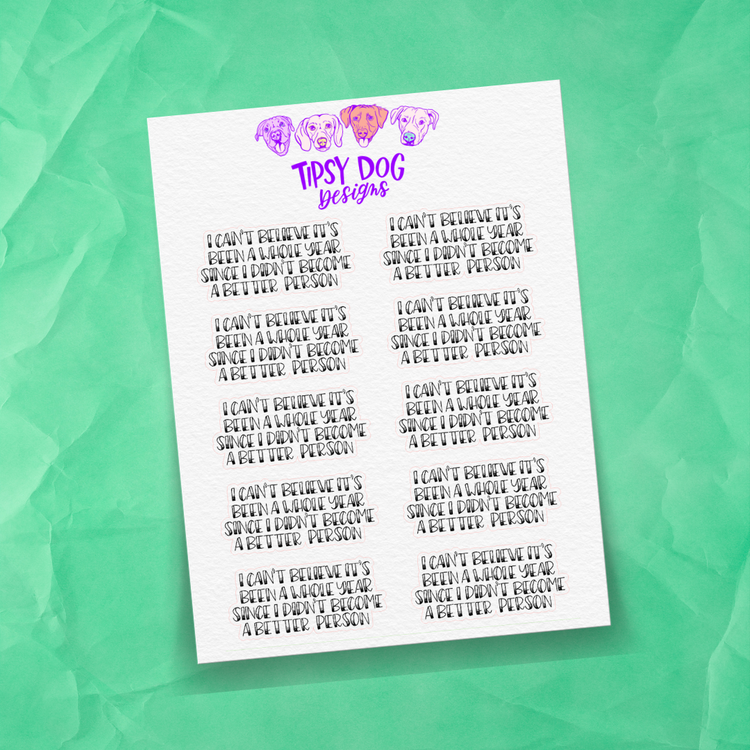 TIPSY DOG
Designs
I CAN'T BELIEVE IT'S
BEEN A WHOLE YEAR
SINCE I DIDN'T BECOME
A BETTER PERSON
I CAN'T BELIEVE IT'S
BEEN A WHOLE YEAR
SINCE I DIDN'T BECOME
A BETTER PERSON
I CAN'T BELIEVE IT'S
BEEN A WHOLE YEAR
SINCE I DIDN'T BECOME
A BETTER PERSON
I CAN'T BELIEVE IT'S
BEEN A WHOLE YEAR
SINCE I DIDN'T BECOME
A BETTER PERSON
I CAN'T BELIEVE IT'S
BEEN A WHOLE YEAR
SINCE I DIDN'T BECOME
A BETTER PERSON
I CAN'T BELIEVE IT'S
BEEN A WHOLE YEAR
SINCE I DIDN'T BECOME
A BETTER PERSON
I CAN'T BELIEVE IT'S
BEEN A WHOLE YEAR
SINCE I DIDN'T BECOME
A BETTER PERSON
I CAN'T BELIEVE IT'S
BEEN A WHOLE YEAR
SINCE I DIDN'T BECOME
A BETTER PERSON
I CAN'T BELIEVE IT'S
BEEN A WHOLE YEAR
SINCE I DIDN'T BECOME
A BETTER PERSON
I CAN'T BELIEVE IT'S
BEEN A WHOLE YEAR
SINCE I DIDN'T BECOME
A BETTER PERSON